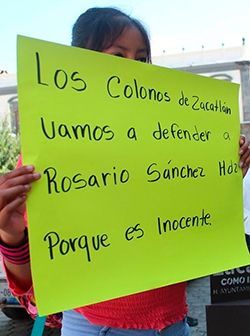 Los Colonos de Zacatlán
vamos a defender a
Rosario Sánchez Hdz
Porque es Inocente.
COMO
H. AYUNTAMIEN